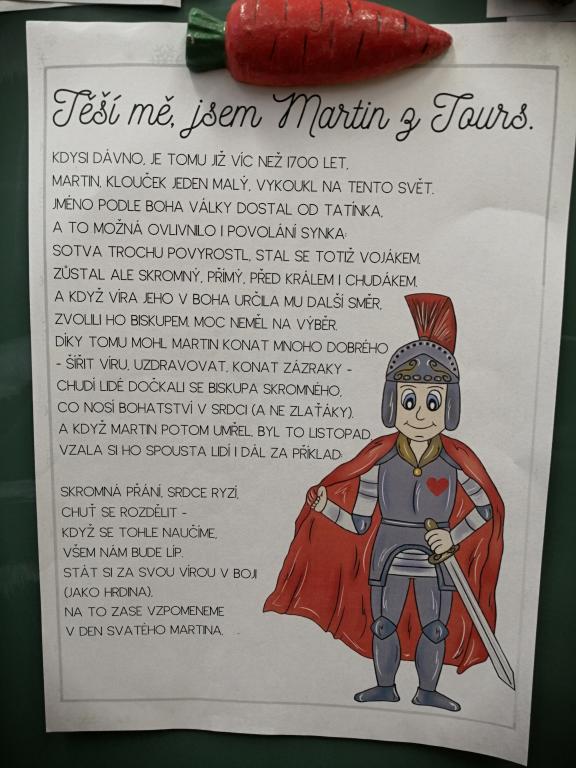 Těší mě, jsem Martin z Tours.
KDYSI DÁVNO, JE TOMU JIŽ VÍC NEŽ 1700 LET,
MARTIN, KLOUČEK JEDEN MALÝ, VYKOUKL NA TENTO SVĚT.
JMÉNO PODLE BOHA VÁLKY DOSTAL OD TATÍNKA,
A TO MOŽNÁ OVLIVNILO I POVOLÁNÍ SYNKA:
SOTVA TROCHU POVYROSTL, STAL SE TOTIŽ VOJÁKEM.
ZŮSTAL ALE SKROMNÝ, PŘÍMÝ, PŘED KRÁLEM I CHUDÁKEM.
A KDYŽ VÍRA JEHO V BOHA URČILA MU DALŠÍ SMĚR,
ZVOLILI HO BISKUPEM, MOC NEMĚL NA VÝBĚR.
DÍKY TOMU MOHL MARTIN KONAT MNOHO DOBRÉHO
- ŠÍŘIT VÍRU, UZDRAVOVAT, KONAT ZÁZRAKY -
CHUDÍ LIDÉ DOČKALI SE BISKUPA SKROMNÉHO,
CO NOSÍ BOHATSTVÍ V SRDCI (A NE ZLAŤÁKY).
A KDYŽ MARTIN POTOM UMŘEL, BYL TO LISTOPAD,
VZALA SI HO SPOUSTA LIDÍ I DÁL ZA PŘÍKLAD:
SKROMNÁ PŘÁNÍ, SRDCE RYZÍ,
CHUŤ SE ROZDĚLIT -
KDYŽ SE TOHLE NAUČÍME,
VŠEM NÁM BUDE LÍP.
STÁT SI ZA SVOU VÍROU V BOJI
(JAKO HRDINA).
NA TO ZASE VZPOMENEME
V DEN SVATÉHO MARTINA.